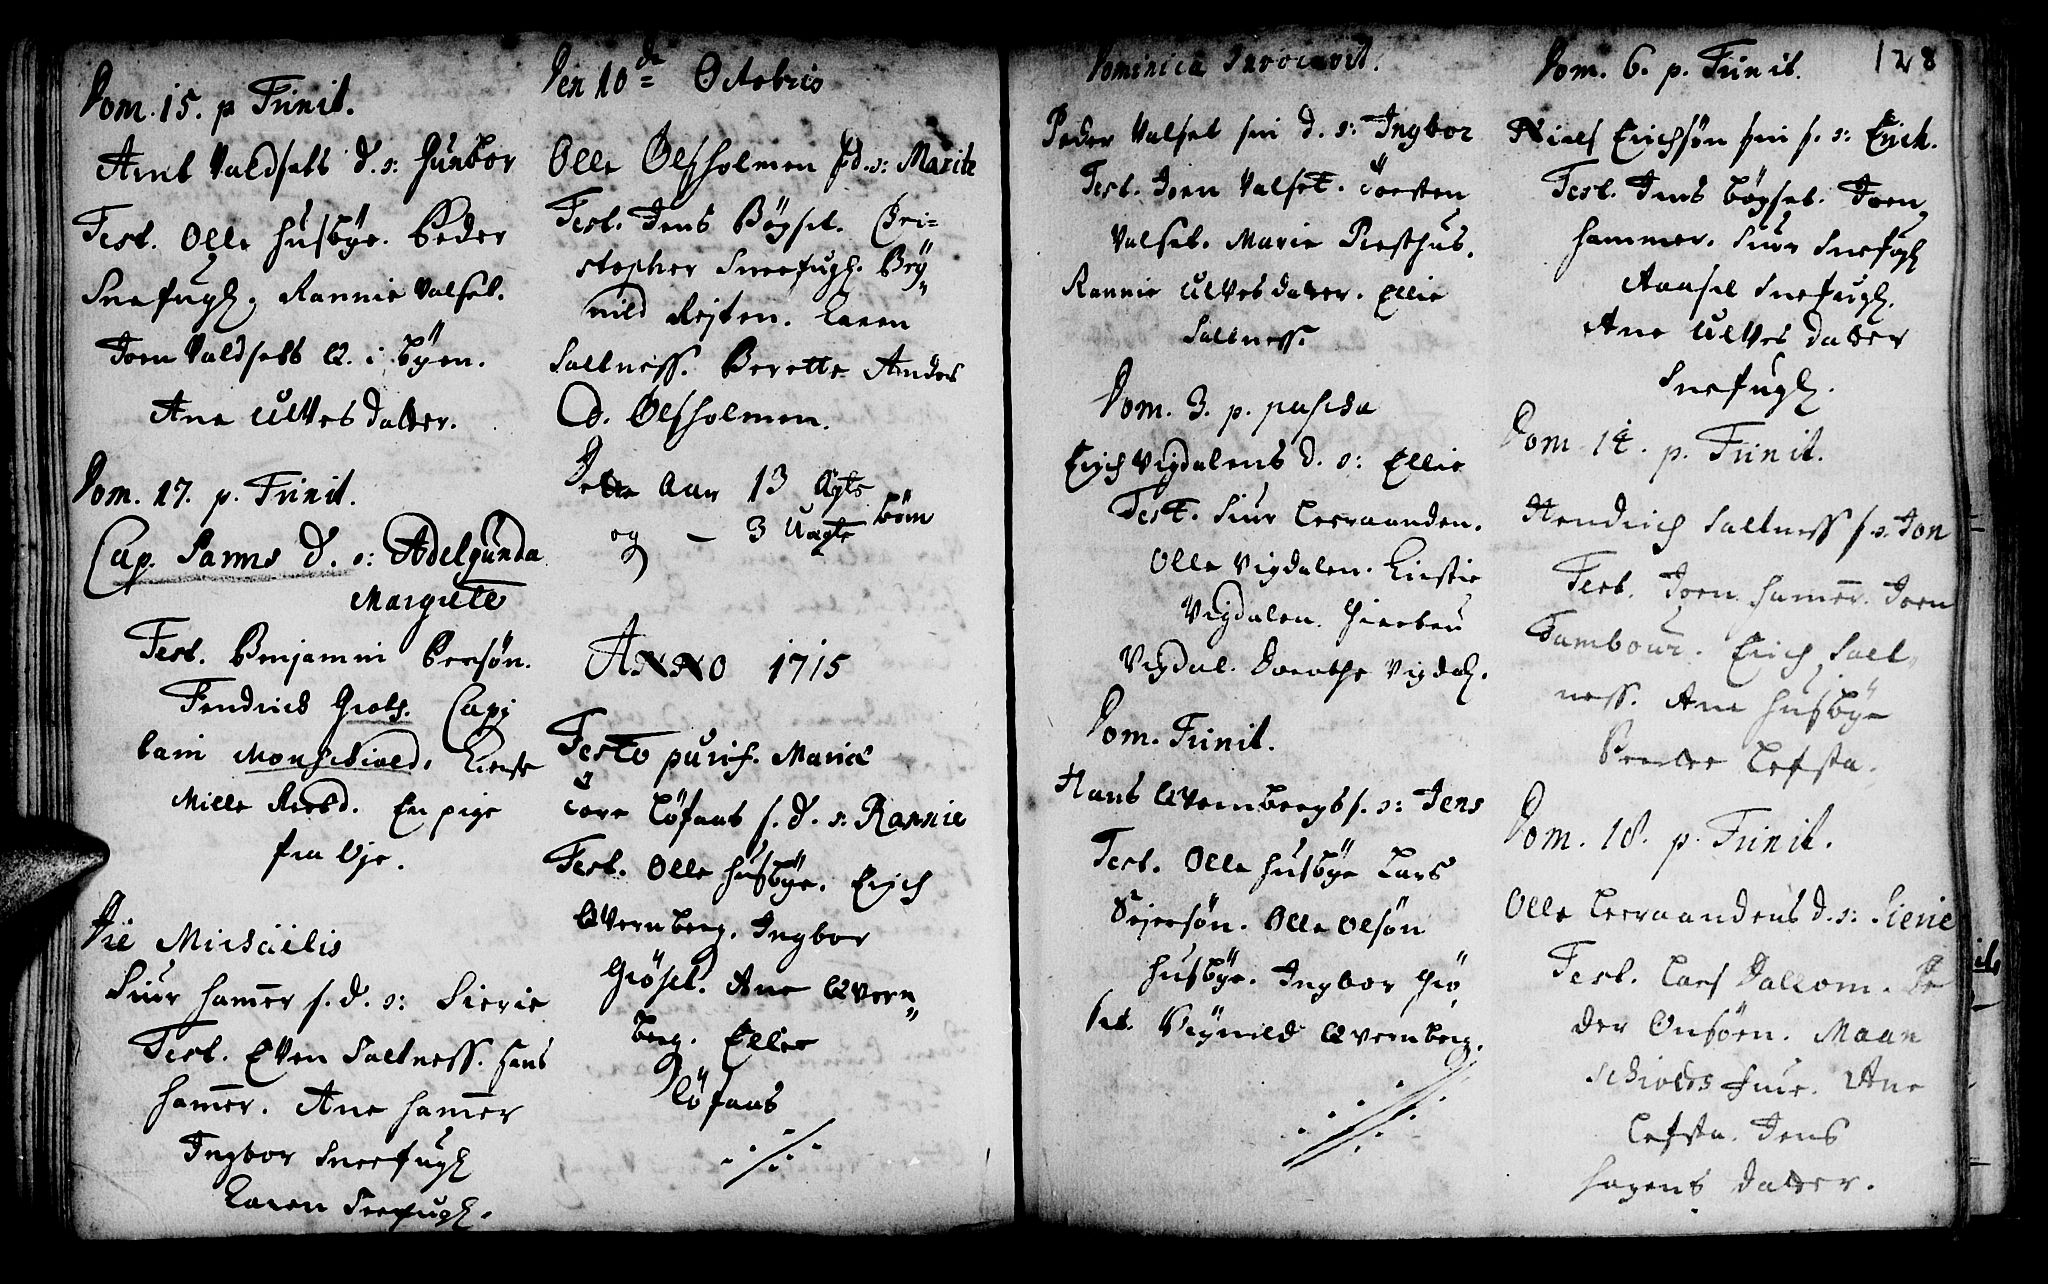 Dom. 15. p Trinit.
Arnt Valdsets d. n: Gunbor
Test. Olle Husbÿe. Peder
Sneefugl. Rannie Valset.
Joen Valdsets Q. i bÿen.
Ane Ulvesdatter.
Dom. 17. p. Trinit.
Cap. Parms D. n: Adelgunda
Margrete
Test. Benjamin Persøn.
Fendrich Grots. Capi
tain Monschiold.
Mille Reesd. En pige
fra Øje.
Die Michaelis
Siur Ham̅er f. d. n: Sierie
Test. Even Saltness. Hans
Ham̅er. Ane Ham̅er
Ingbor Sneefugl
Karen Sneefugl.
Den 10de Octobris
Olle Ølsholmen f d. n: Marite
Test. Jens Bögset. Chri=
stopher Sneefugl. Brÿ„
nild Rejten. Karen
Saltness. Berette Anders
D. Ølsholmen.
Dette Aar 13 Ægte
og — 3 Uægte børn
ANNO 1715
Festo purif. Mariæ
Tore Löfaas f. d. n: Rannie
Test. Olle Husbÿe. Erich
Qvernberg. Ingbor
Giöset. Ane Qvern„
berg. Ellie
Löfaas
Dominica Invocavit.
Peder Valset sin d. n: Ingbor
Test. Joen Valset. Torsten
Valset. Marie Presthus.
Rannie Ulvesdatter. Ellie
Saltness.
Dom. 3. p. pascha
Erich Vigdalens d. n: Ellie
Test. Siur Leeraanden.
Olle Vigdalen. Kirstie
Vigdalen.
Vigdal. Dorothe Vigdal.
Dom. Trinit.
Hans Qvernbergs f. n: Jens
Test. Olle Husbÿe Lars
Sejersøn. Olle Olsøn
Husbÿe. Ingbor Giö
set. Brÿnild Qvernberg.
128
Dom. 6. p. Trinit.
Niels Erichsøn sin f. n: Erich.
Test. Jens Bögset. Joen
Hammer. Siur Sneefugl
Aaasel Sneefugl.
Ane Ulvesdatter
Sneefugl.
Dom. 14. p. Trinit.
Hendrich Saltness f n. Jon
Test. Joen Ham̅er. Joen
Tambour. Erich Salt„
ness. Ane Husbÿe
Lefsta.
Dom. 18. p. Trinit.
Olle Leeraandens d. n: Sierie
Test. Lars Dallom. Pe
der Onsöen. Maan
schiolds Frue. Ane
Lefsta. Jens
Hagens datter.